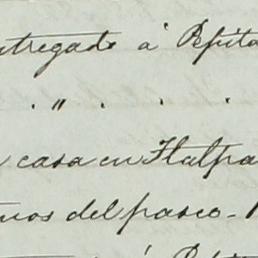 ntregado á Pepita
. " . . .
casa en Tlalpa
nos del paseo-
á Pepita